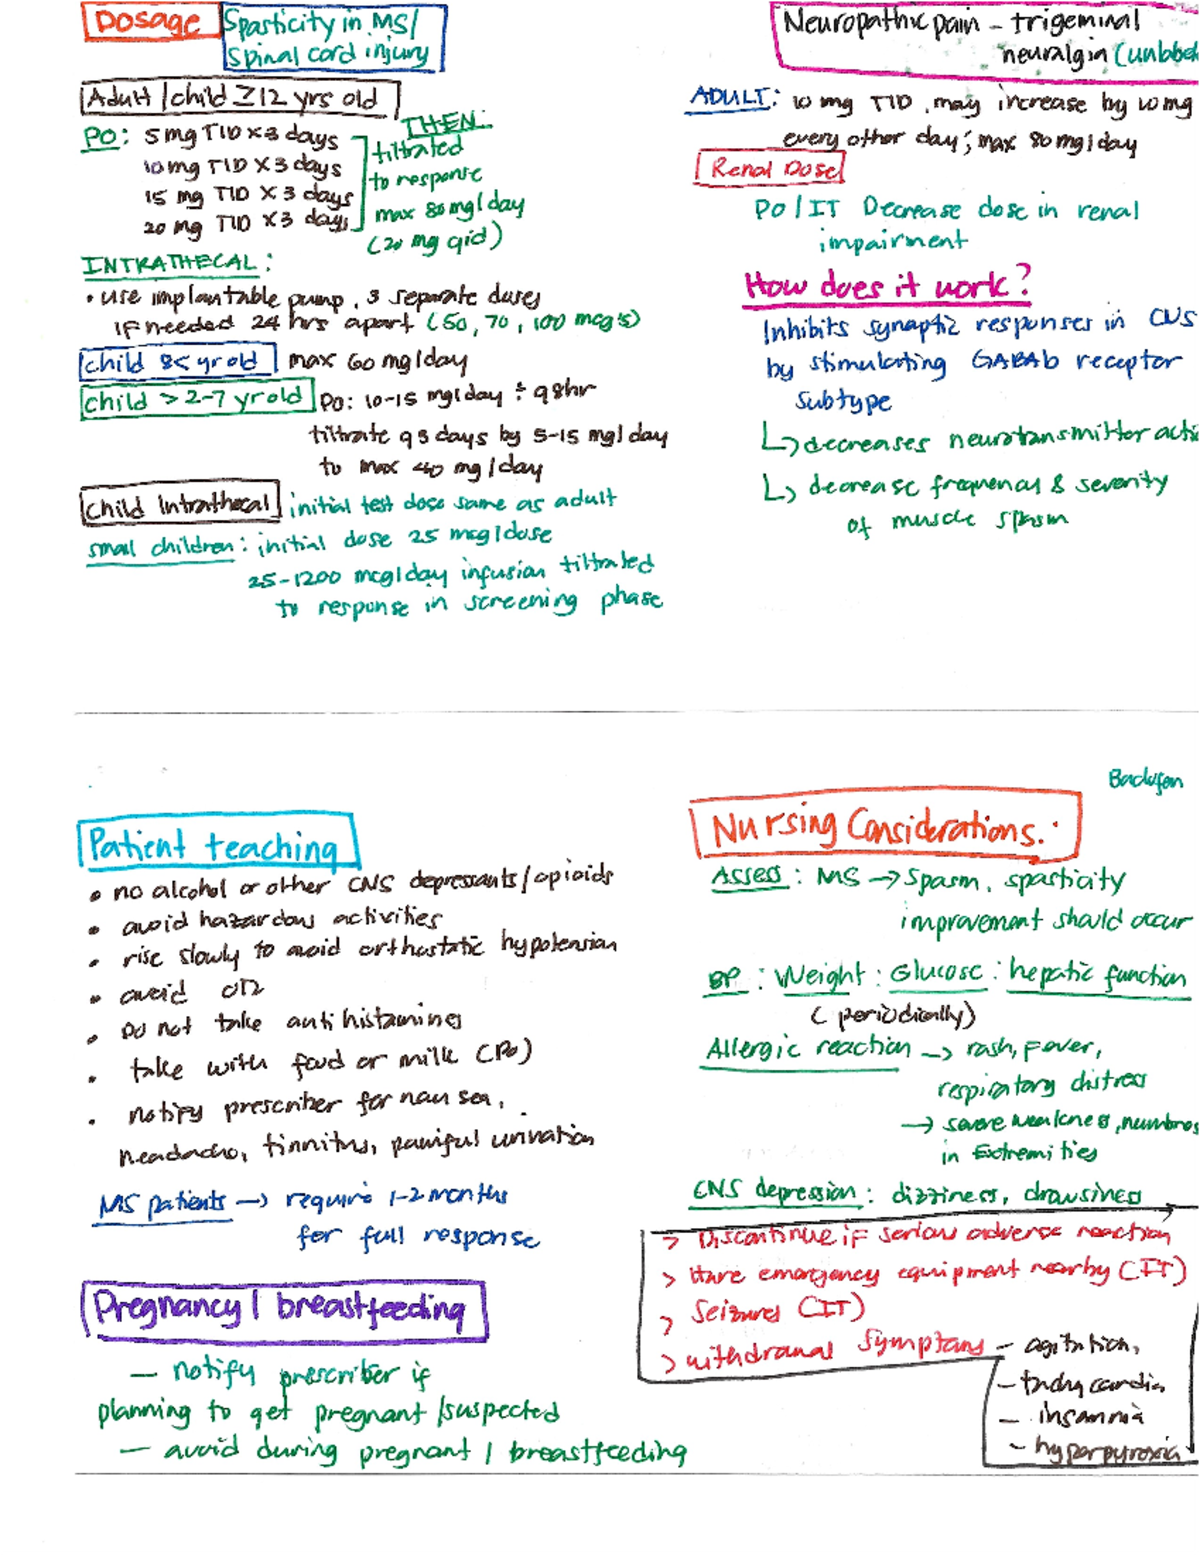 Dosage
Spasticity in MS/
Spinal cord injury
Adult/child ≥12 yrs old
PO: 5mg TID x3 days
10mg TID x3 days
15 mg TID x3 days
20 mg TID x3 days
THEN:
tiltrated
to response
max 80mg/day
(20 mg qid)
INTRATHECAL:
• use implantable pump, 3 separate doses
if needed 24 hrs apart (50, 70, 100 mcg's)
child 8< yr old max 60 mg/day
child >2-7 yr old PO: 10-15 mg/day ÷ q8hr
tiltrate q3 days by 5-15 mg/day
to max 40 mg/day
child Intrathecal initial test dose same as adult
small children: initial dose 25 mcg/dose
25-1200 mcg/day infusion tiltrated
to response in screening phase
Neuropathic pain - trigeminal
neuralgia
ADULT: 10 mg TID, may increase by 10mg
every other day; max 80 mg/day
Renal Dose
PO/IT Decrease dose in renal
impairment
How does it work?
Inhibits synaptic responses in CNS
by stimulating GABAb receptor
subtype
↳ decreases neurotransmitter
↳ decrease frequency & severity
of muscle spasm
Patient teaching
• no alcohol or other CNS depressants/opioids
• avoid hazardous activities
• rise slowly to avoid orthostatic hypotension
• avoid
• Do not take antihistamines
• take with food or milk (PO)
• notify prescriber for nausea,
headache, tinnitus, painful urination
MS patients → require 1-2 months
for full response
Pregnancy/breastfeeding
- notify prescriber if
planning to get pregnant/suspected
- avoid during pregnant/breastfeeding
Baclofen
Nursing Considerations:
Assess: MS → spasm, spasticity
improvement should occur
BP: Weight: Glucose: hepatic function
(periodically)
Allergic reaction → rash, fever,
respiratory distress
→ severe weakness,
in Extremities
CNS depression: dizziness, drowsiness
> Discontinue if serious adverse reaction
> Have emergency equipment nearby (IT)
> Seizures (IT)
> withdrawal symptoms - agitation,
- tachycardia
- insomnia
- hyperpyrexia